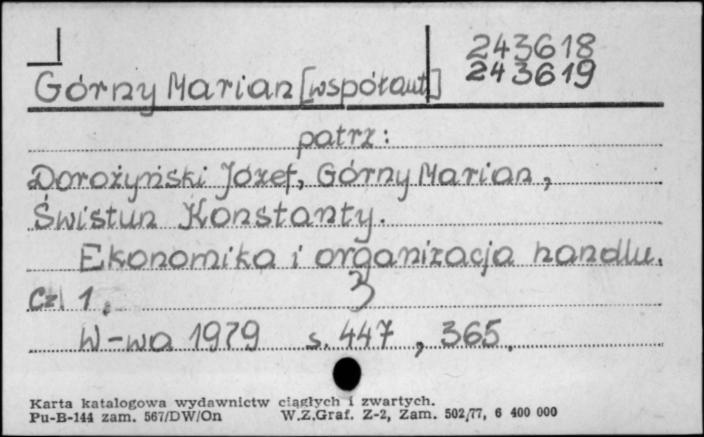 243618
243619
Górny Marian [współaut]
patrz:
Dorożyński Józef, Górny Marian,
Świstun Konstanty.
Ekonomika i organizacja handlu.
Cz. 1, 3
W-wa 1979 s. 447, 365.
Karta katalogowa wydawnictw ciągłych i zwartych.
Pu-B-144 zam. 567/DW/On W.Z.Graf. Z-2, Zam. 502/77, 6 400 000